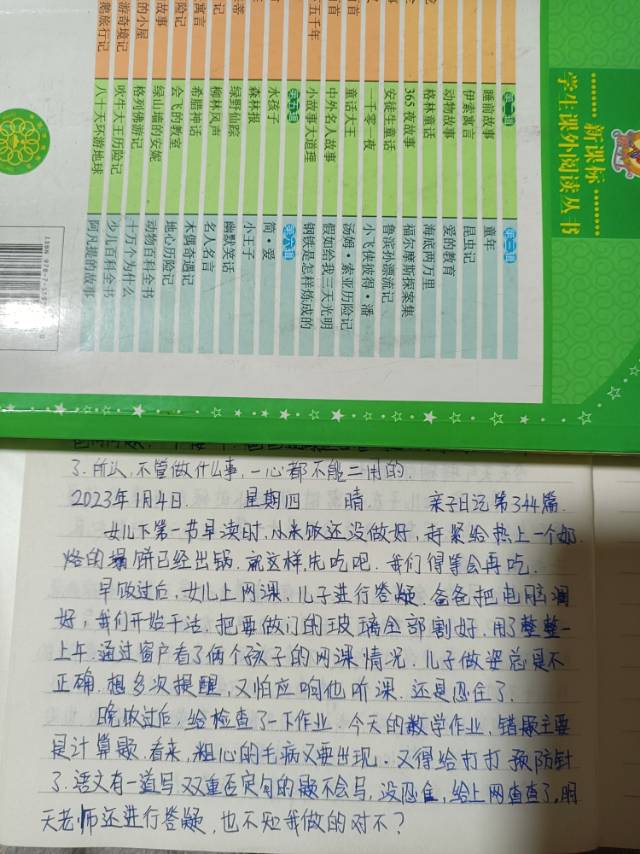 新课标
学生课外阅读丛书
第二辑
睡前故事
伊索寓言
动物故事
格林童话
365夜故事
安徒生童话
一千零一夜
童话大王
中外名人故事
小故事大道理
第五辑
水孩子
森林报
绿野仙踪
柳林风声
希腊神话
会飞的教室
绿山墙的安妮
格列佛游记
吹牛大王历险记
八十天环游地球
第三辑
童年
昆虫记
爱的教育
海底两万里
福尔摩斯探案集
鲁滨孙漂流记
小飞侠彼得·潘
汤姆·索亚历险记
假如给我三天光明
钢铁是怎样炼成的
第六辑
简·爱
小王子
幽默笑话
名人名言
木偶奇遇记
地心历险记
动物百科全书
十万个为什么
少儿百科全书
阿凡提的故事
五千年
寓言
故事
的小屋
游奇境记
鹅旅行记
ISBN 978-7
3.所以,不管做什么事,一心都不能二用的.
2023年1月4日. 星期四 晴 亲子日记第344篇.
女儿下第一节早读时,小米饭还没做好,赶紧给热上一个奶.
烙的饼已经出锅.就这样,先吃吧.我们得等会再吃.
早饭过后,女儿上网课.儿子进行答疑.爸爸把电脑调
好,我们开始干活.把要做门的玻璃全部割好.用了整整一
上午.通过窗户看了俩个孩子的网课情况.儿子做姿总是不
正确.想多次提醒,又怕应响他听课.还是忍住了.
晚饭过后,给检查了一下作业.今天的数学作业,错题主要
是计算题.看来,粗心的毛病又要出现.又得给打打预防针
了.语文有一道写双重否定句的题不会写,没忍住,给上网查查了,明
天老师还进行答疑,也不知我做的对不?